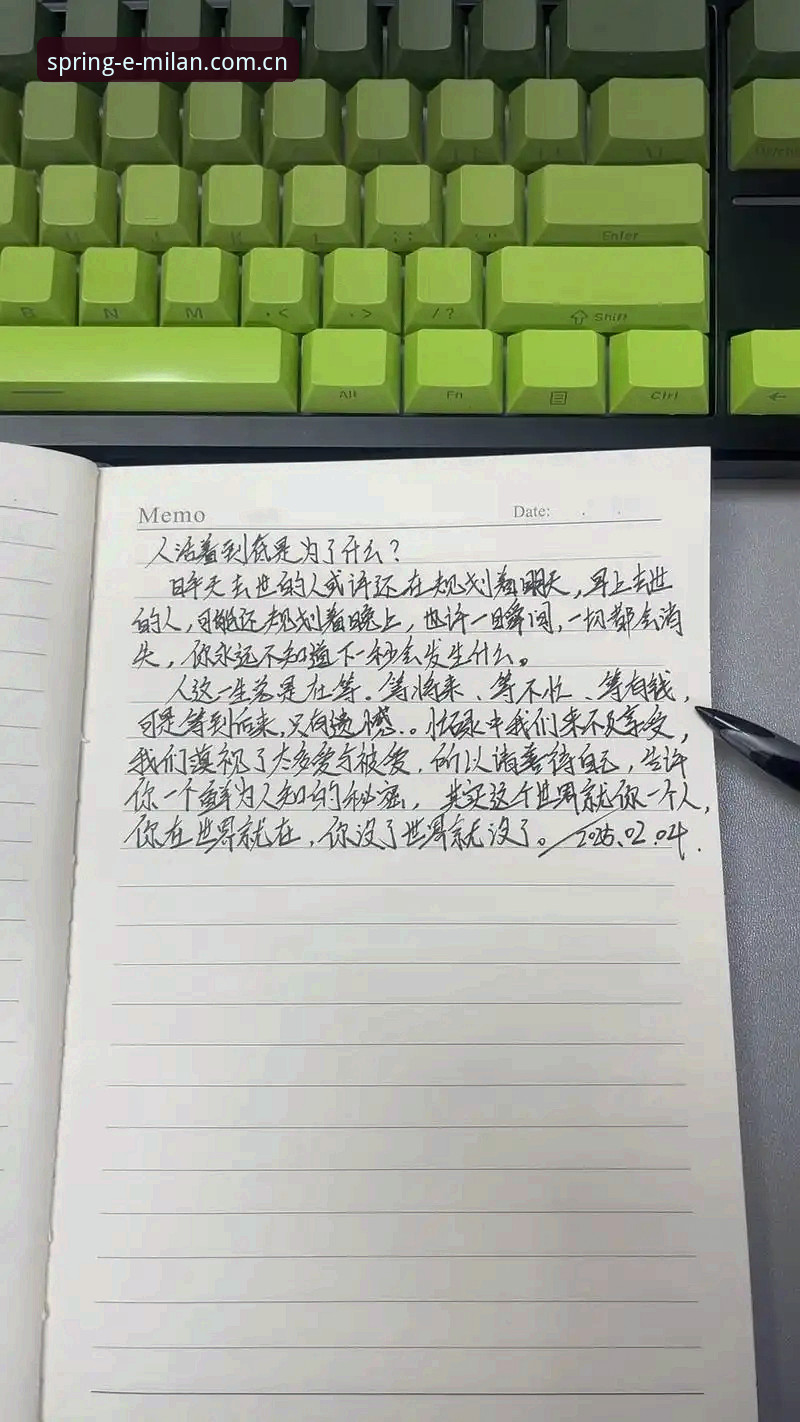 spring-e-milan.com.cn
Enter
B N M , < . > / ?
Shift
Alt Fn Ctrl
Memo Date: . .
人活着到底是为了什么？
昨天去世的人或许还在规划着明天，早上去世
的人，可能还规划着晚上，也许一瞬间，一切都会消
失，你永远不知道下一秒会发生什么。
人这一生总是在等。等将来、等不忙、等有钱，
可是等到后来，只有遗憾。。忙碌中我们来不及享受，
我们漠视了太多爱与被爱，所以请善待自己，告诉
你一个鲜为人知的秘密，其实这个世界就你一个人，
你在世界就在，你没了世界就没了。2025.02.04.